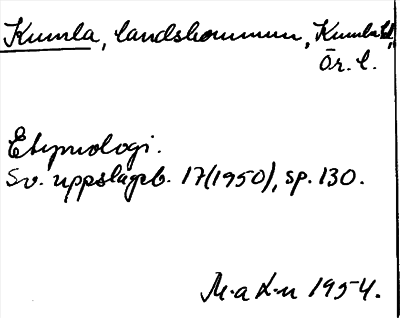 Kumla, landskommun, Kumla hd,
Ör. l.
Etymologi.
Sv. uppslagsb. 17(1950), sp. 130.
M-a L-n 1954.